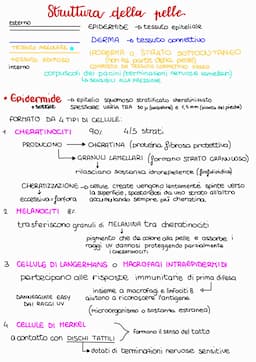 Struttura della pelle
esterno
EPIDERMIDE → tessuto epiteliale
DERMA → tessuto connettivo
TESSUTO AREOLARE
IPODERMA O STRATO SOTTOCUTANEO
(non fa parte della pelle)
TESSUTO ADIPOSO
interno
corpuscoli dei pacini (terminazioni nervose lamellari)
→ sensibili alla pressione
• Epidermide → epitelio squamoso stratificato cheratinizzato
SPESSORE VARIA TRA
(pianta del piede)
FORMATO DA 4 TIPI DI CELLULE:
1 CHERATINOCITI 90% 4/5 strati
PRODUCONO → CHERATINA (proteina fibrosa protettiva)
→ GRANULI LAMELLARI (formano STRATO GRANULOSO)
rilasciano sostanza idrorepellente
CHERATINIZZAZIONE → cellule create vengono lentamente spinte verso
la superficie, spostandosi da uno strato all'altro
accumulando sempre più cheratina.
2 MELANOCITI 8%
trasferiscono granuli di MELANINA tra cheratinociti
pigmento che da colore alla pelle e assorbe i
raggi UV dannosi proteggendo parzialmente
i CHERATINOCITI
3 CELLULE DI LANGERHANS O MACROFAGI INTRAEPIDERMIDI
partecipano alle risposte immunitarie di prima difesa
DANNEGGIATE EASY
DAI RAGGI UV
insieme a macrofagi e linfociti B
aiutano a riconoscere l'antigene
(microorganismo o sostanza estranea)
4 CELLULE DI MERKEL
a contatto con DISCHI TATTILI
formano il senso del tatto
→ dotati di terminazioni nervose sensitive